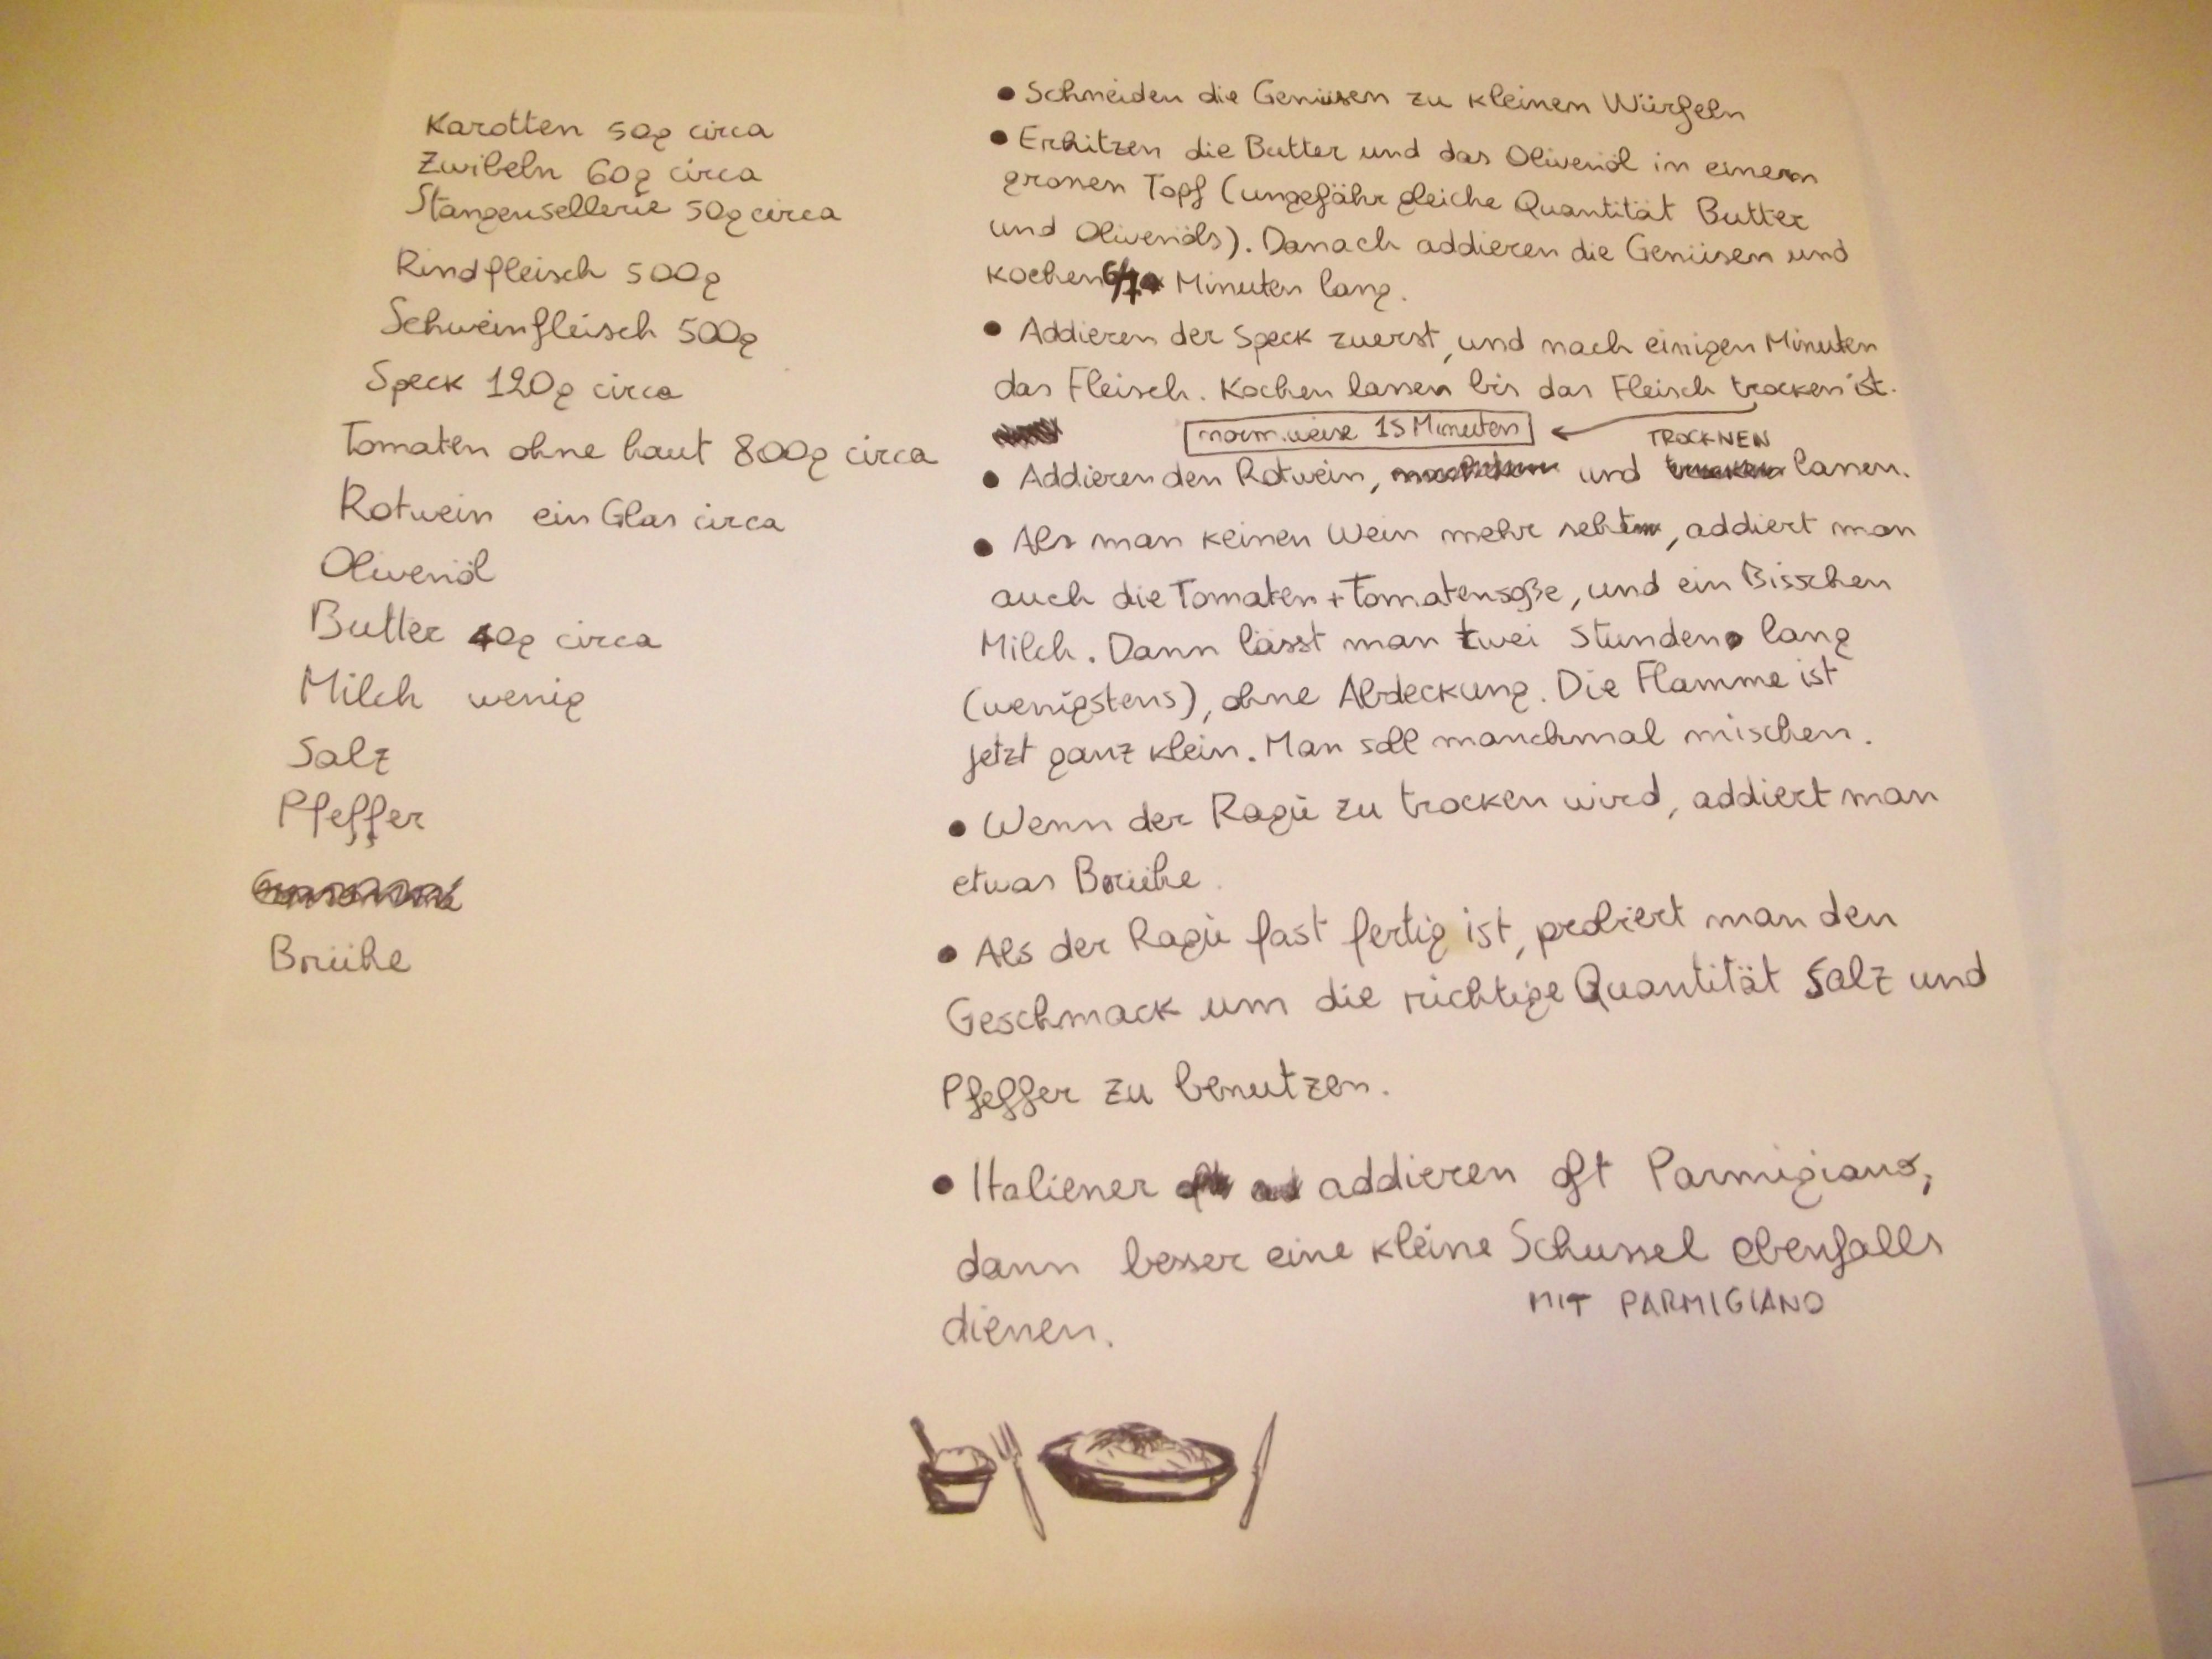 Karotten 50g circa
Zwibeln 60g circa
Stangensellerie 50g circa
Rindfleisch 500g
Schweinfleisch 500g
Speck 120g circa
Tomaten ohne haut 800g circa
Rotwein ein Glas circa
Olivenöl
Butter 40g circa
Milch wenig
Salz
Pfeffer
Brühe
• Schneiden die Gemüsen zu kleinen Würfeln
• Erhitzen die Butter und das Olivenöl in einem
grossen Topf (ungefähr gleiche Quantität Butter
und Olivenöls). Danach addieren die Gemüsen und
kochen 6/7 Minuten lang.
• Addieren der Speck zuerst, und nach einigen Minuten
das Fleisch. Kochen lassen bis das Fleisch trocken ist.
norm.weise 15 Minuten
TROCKNEN
• Addieren den Rotwein, und lassen.
• Als man keinen Wein mehr seht, addiert man
auch die Tomaten + Tomatensoße, und ein Bisschen
Milch. Dann lässt man zwei Stunden lang
(wenigstens), ohne Abdeckung. Die Flamme ist
jetzt ganz klein. Man soll manchmal mischen.
• Wenn der Ragù zu trocken wird, addiert man
etwas Brühe.
• Als der Ragù fast fertig ist, probiert man den
Geschmack um die richtige Quantität Salz und
Pfeffer zu benutzen.
• Italiener addieren oft Parmigiano,
dann besser eine kleine Schussel ebenfalls
MIT PARMIGIANO
dienen.